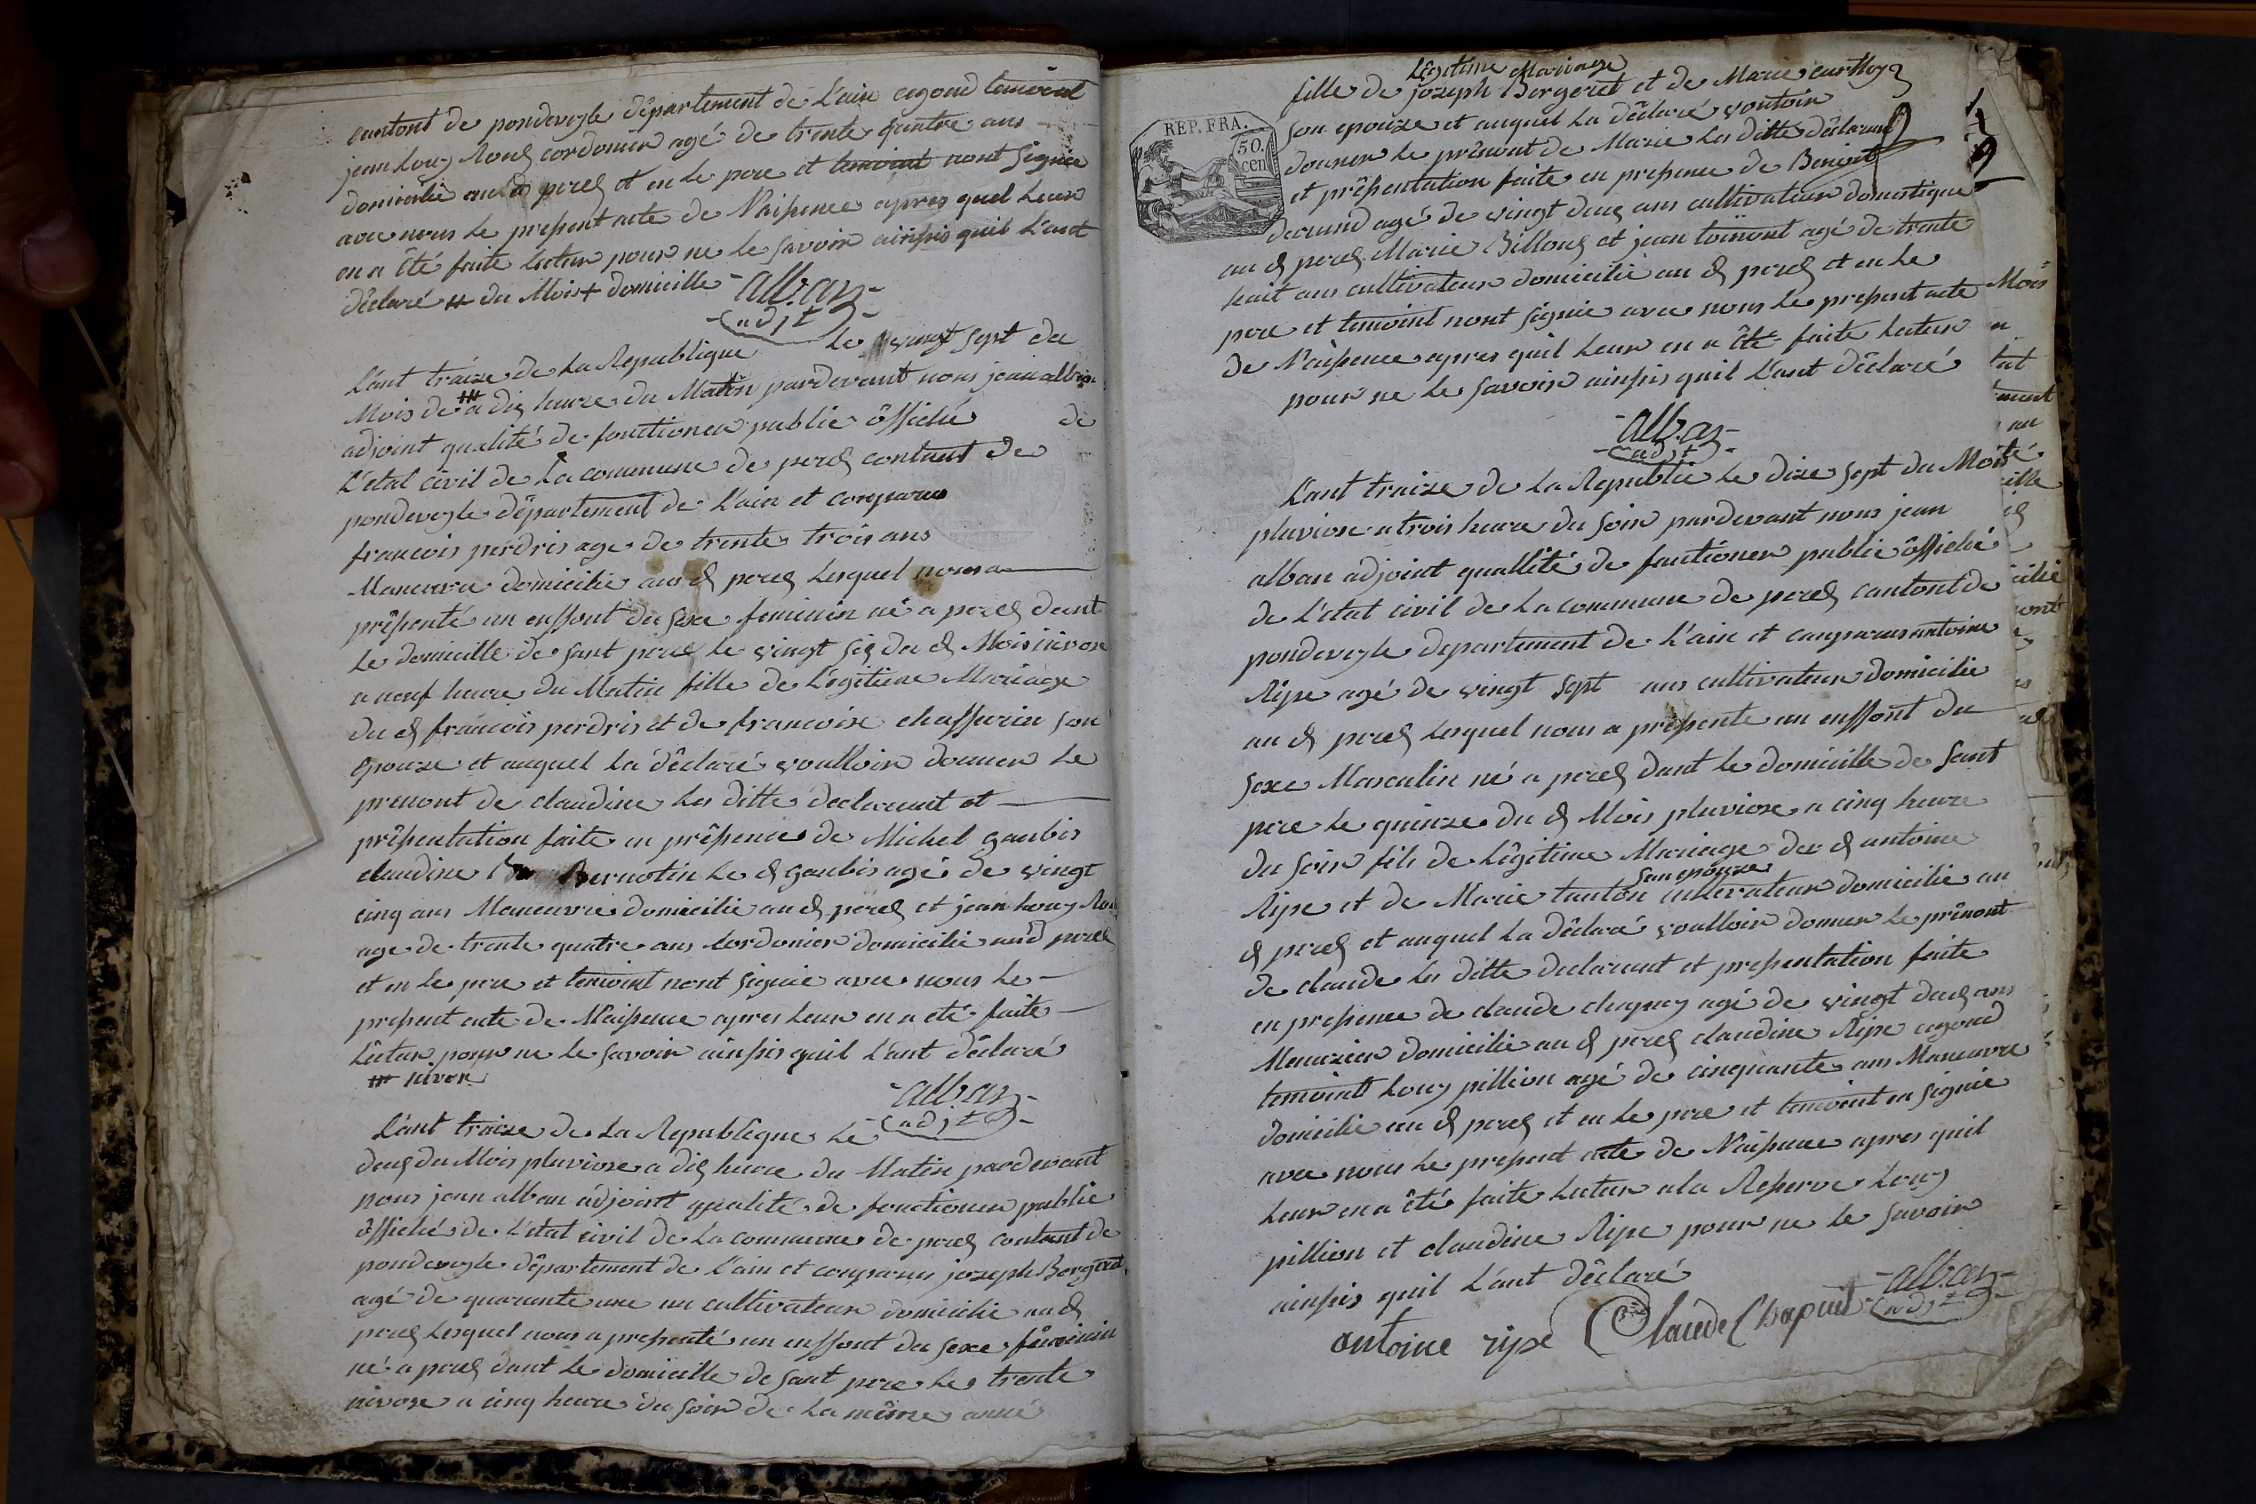 cantont de pondeveyle département de L'ain cegond temoint
jean Louy Roux cordonier agé de trente quatre ans
domicilié au d perex et en le pere et temoint nont signié
avec nous le present acte de Naissence apres quel Leur
en a été faite Lectur pour ne le savoir ainssis quil L'ant
déclaré # du Mois + domicille
alban
adjt
L'ant traize de La Republique le vingt sept du
Mois de # a dix heure du Matin pardevant nous jean alban
adjoint qualité de fonctioner public ôfficié de
L'etat civil de La commune de perex contant de
pondeveyle département de L'ain et comparus
francois perdris age de trente trois ans
Maneuvre domicilié au d perex Lesquel nous a
présenté un enffant du sexe feminin né a perex dant
le domicille de sant pere le vingt six du d Mois nivose
a neuf heure du Matin fille de Légitime Mariage
du d francois perdris et de francoise chaffurin son
epouze et auquel La déclaré voulloir donner le
prenont de claudine Les ditte declarant et
présentation faite en présence de Michel gaubis
claudine Bernotin Le d gaubis agé de vingt
cinq ans Maneuvre domicilié au d perex et jean Louy Roux
age de trente quatre ans Cordonier domicilié au d perex
et en le pere et temoint nont signié avec nous le
present acte de Naissence apres Leur en a eté faite
Léctur pour ne le savoir ainssis quil L'ant déclaré
# nivose
alban
adjt
L'ant traize de La Republique Le
deux du Mois pluviose a dix heure du Matin pardevant
nous jean alban adjoint qualité de fonctioner public
ôfficié de L'etat civil de La commune de perex contant de
pondeveyle département de L'ain et comparus jozeph Bergeret
agé de quarante une an cultivateur domicilié au d
perex Lesquel nous a presenté un enffant du sexe féminin
né a perex dant le domicille de sant pere le trente
nivose a cinq heure du soir de La même anné
Légitime Mariage
fille de jozeph Bergeret et de Marie
son epouze et auquel La déclaré voulloir
REP. FRA.
50.
cen
donner le prénont de Marie Les ditte déclarant
et présentation faite en presence de Benoit
decrand agé de vingt deux ans cultivateur domestique
au d perex Marie Billoux et jean toinont agé de trente
huit ans cultivateur domicilié au d perex et en le
pere et temoint nont signié avec nous le present acte
de Naissence apres quil Leur en a été faite Lectur
pour ne le savoir ainssis quil L'ant déclaré
alban
adjt
L'ant traize de La Republic le dixe sept du Mois
pluviose a trois heure du soir pardevant nous jean
alban adjoint quallité de fonctioner public ôfficié
de L'etat civil de La commune de perex cantont de
pondeveyle departement de L'ain et comparus antoine
Ripe agé de vingt sept ans cultivateur domicilié
au d perex Lesquel nous a presenté un enffant du
sexe Masculin né a perex dant le domicille de sant
pere le quinze du d Mois pluviose a cinq heure
du soir fils de Légitime Mariage du d antoine
son epouze
Ripe et de Marie tanton cultivateur domicilié au
d perex et auquel La déclaré voulloir donner le prénont
de claude Les ditte declarant et presentation faite
en presence de claude chapuy agé de vingt deux ans
Menuzier domicilié au d perex claudine Ripe cegond
temoint Louy pillion agé de cinquante ans Maneuvre
domicilié au d perex et en le pere et temoint en signié
avec nous le present acte de Naissence apres quil
Leur en a été faite Lectur a la Reserve Louy
pillion et claudine Ripe pour ne le savoir
ainssis quil L'ant déclaré
alban
adjt
antoine ripe Claude Chapuit